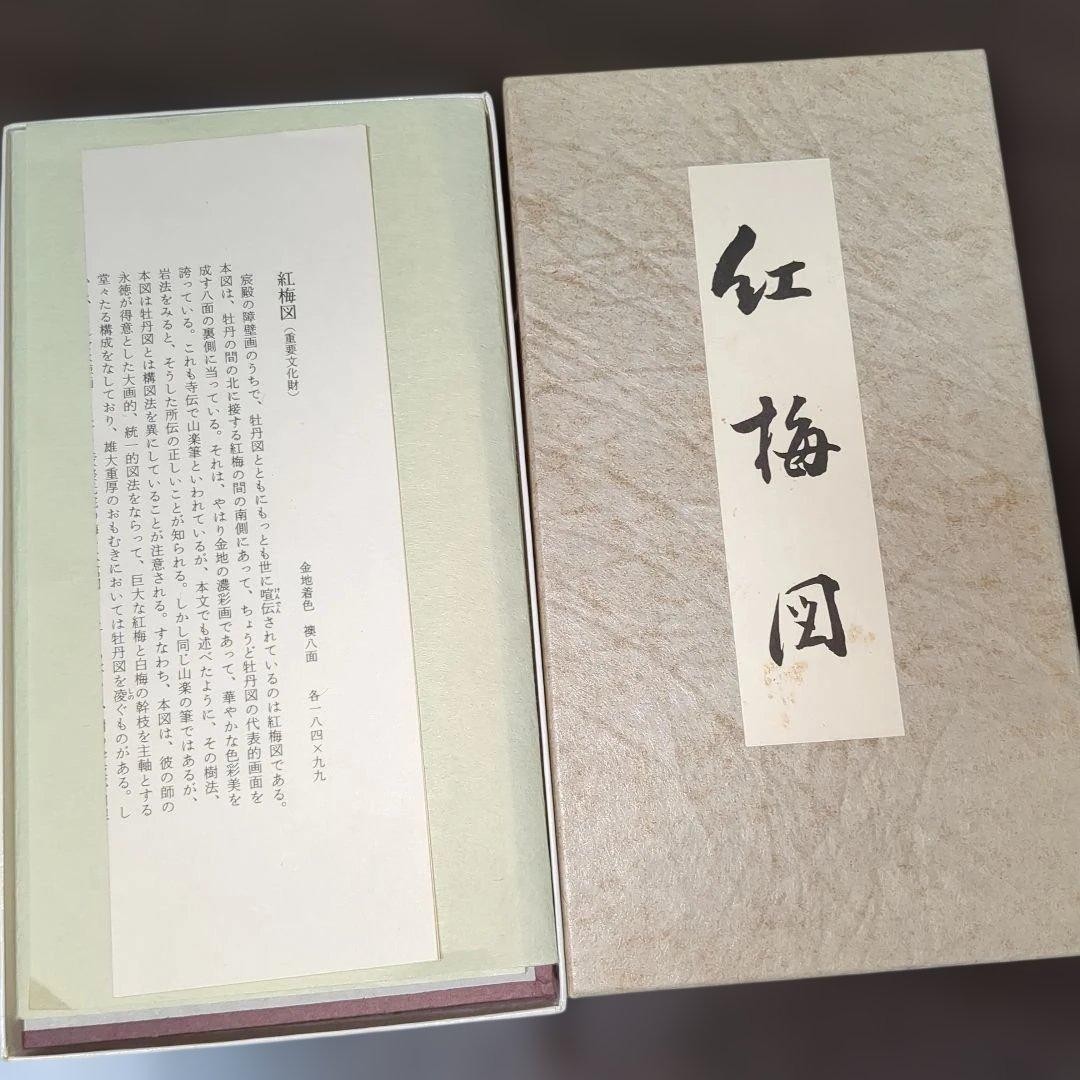 紅梅図(重要文化財)
金地着色 襖八面 各一八四×九九
宸殿の障壁画のうちで、牡丹図とともにもっとも世に喧伝されているのは紅梅図である。
けんでん
本図は、牡丹の間の北に接する紅梅の間の南側にあって、ちょうど牡丹図の代表的画面を
成す八面の裏側に当っている。それは、やはり金地の濃彩画であって、華やかな色彩美を
誇っている。これも寺伝で山楽筆といわれているが、本文でも述べたように、その樹法、
岩法をみると、そうした所伝の正しいことが知られる。しかし同じ山楽の筆ではあるが、
本図は牡丹図とは構図法を異にしていることが注意される。すなわち、本図は、彼の師の
永徳が得意とした大画的、統一的図法をならって、巨大な紅梅と白梅の幹枝を主軸とする
堂々たる構成をなしており、雄大重厚のおもむきにおいては牡丹図を凌ぐものがある。し
しの
紅梅図